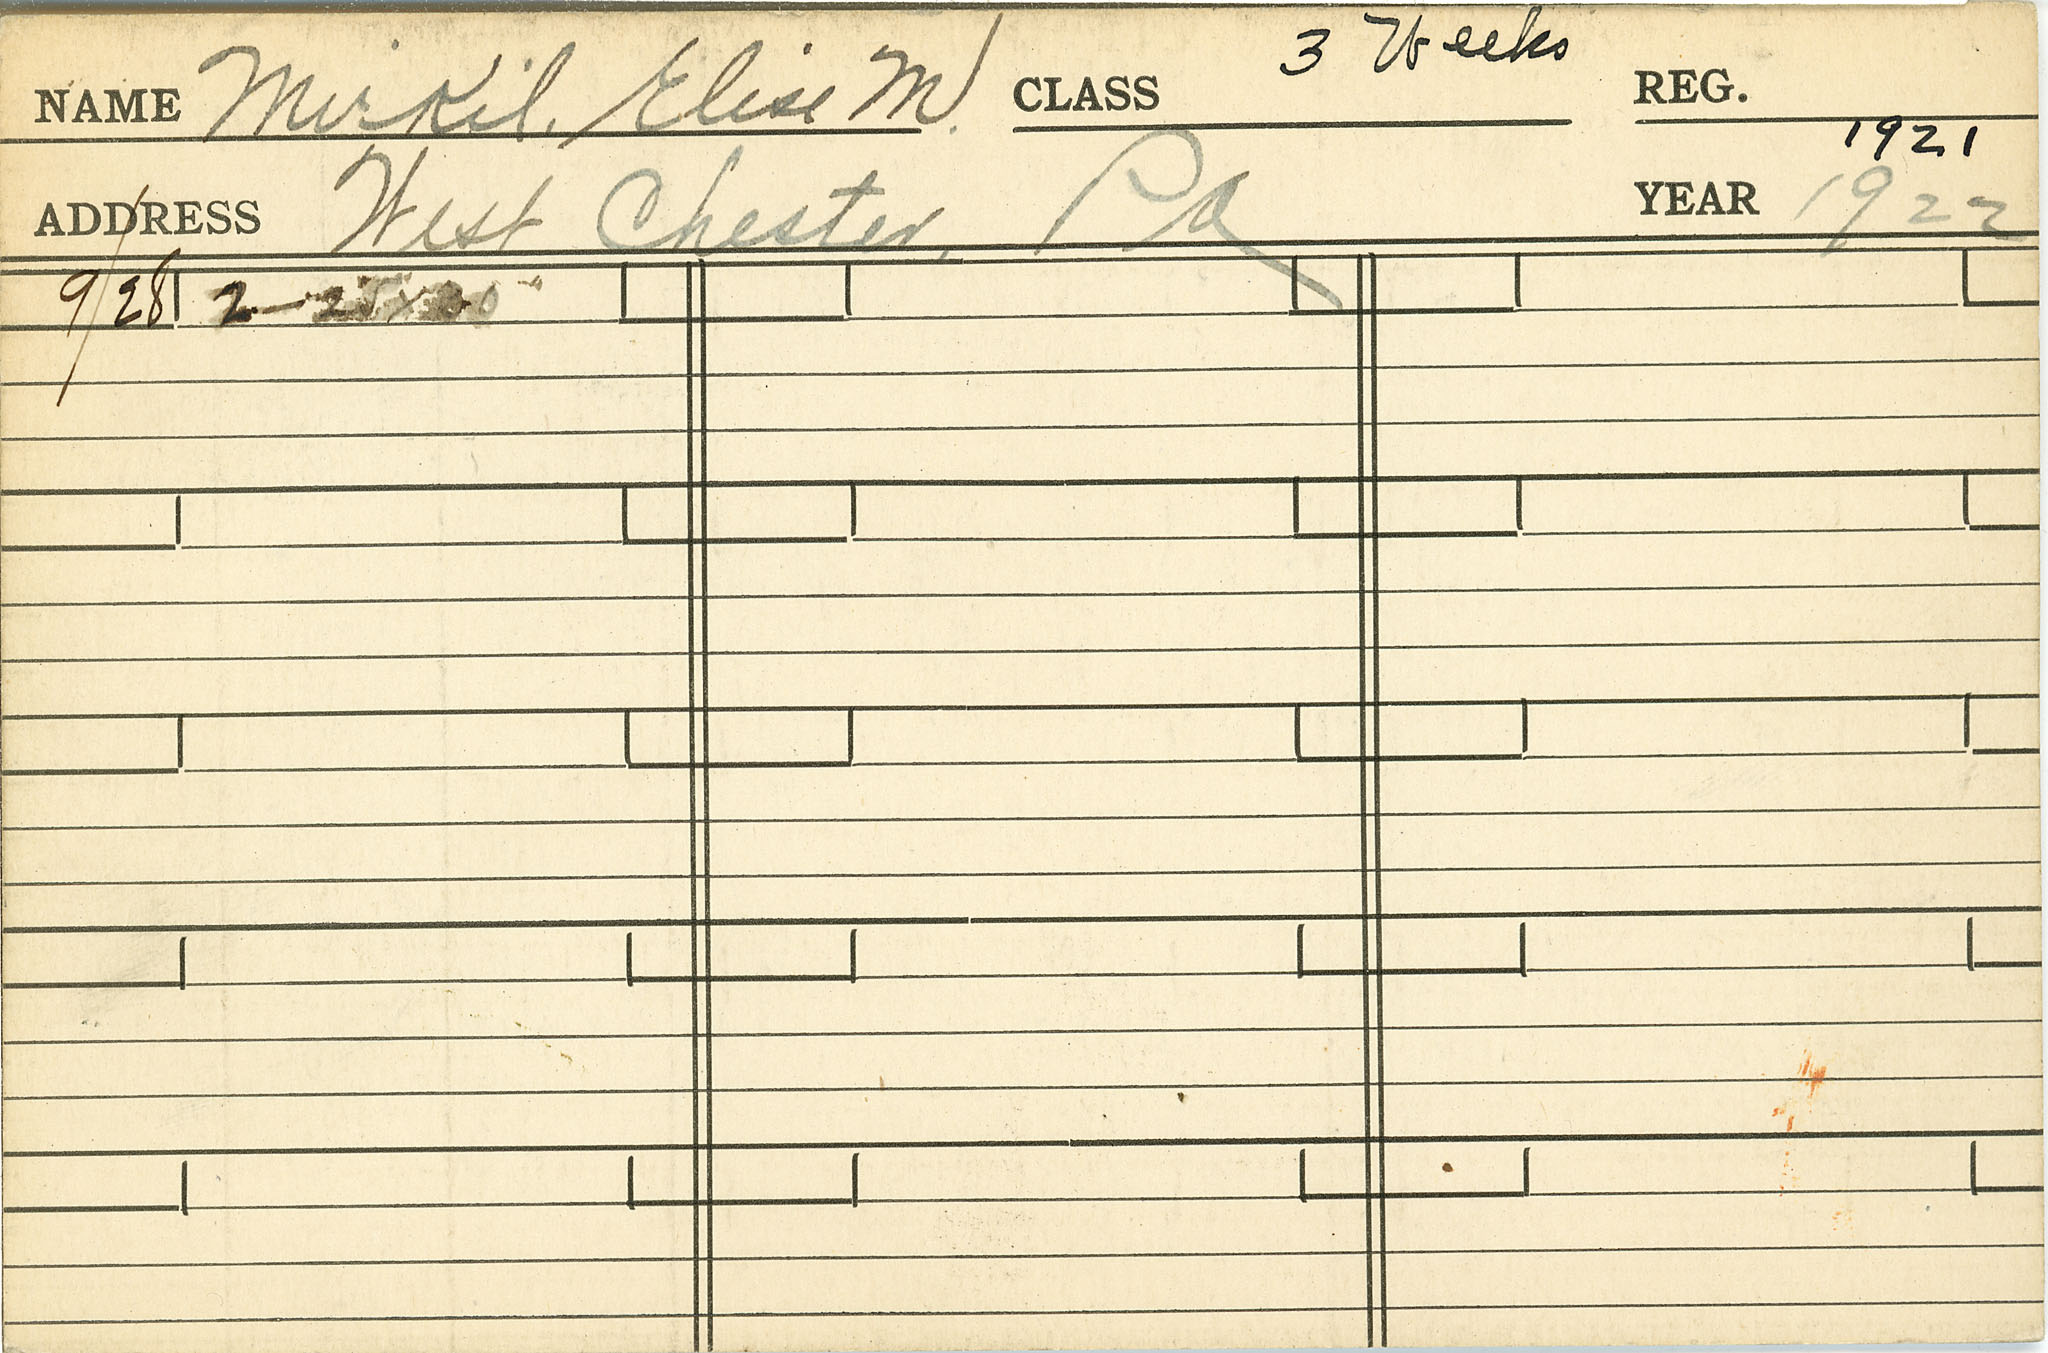 NAME Mirkil, Elise M. CLASS 3 Weeks REG.
1921
ADDRESS West Chester, Pa YEAR 1922
9/28 2—25x30"